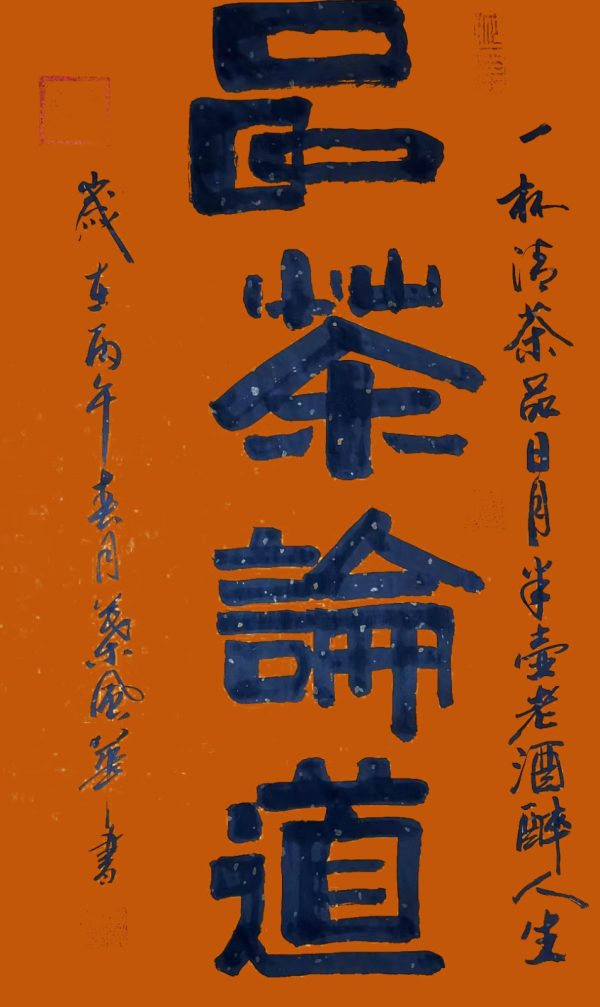 一杯清茶品日月半壶老酒醉人生
品茶論道
歲在丙午春月 風華书